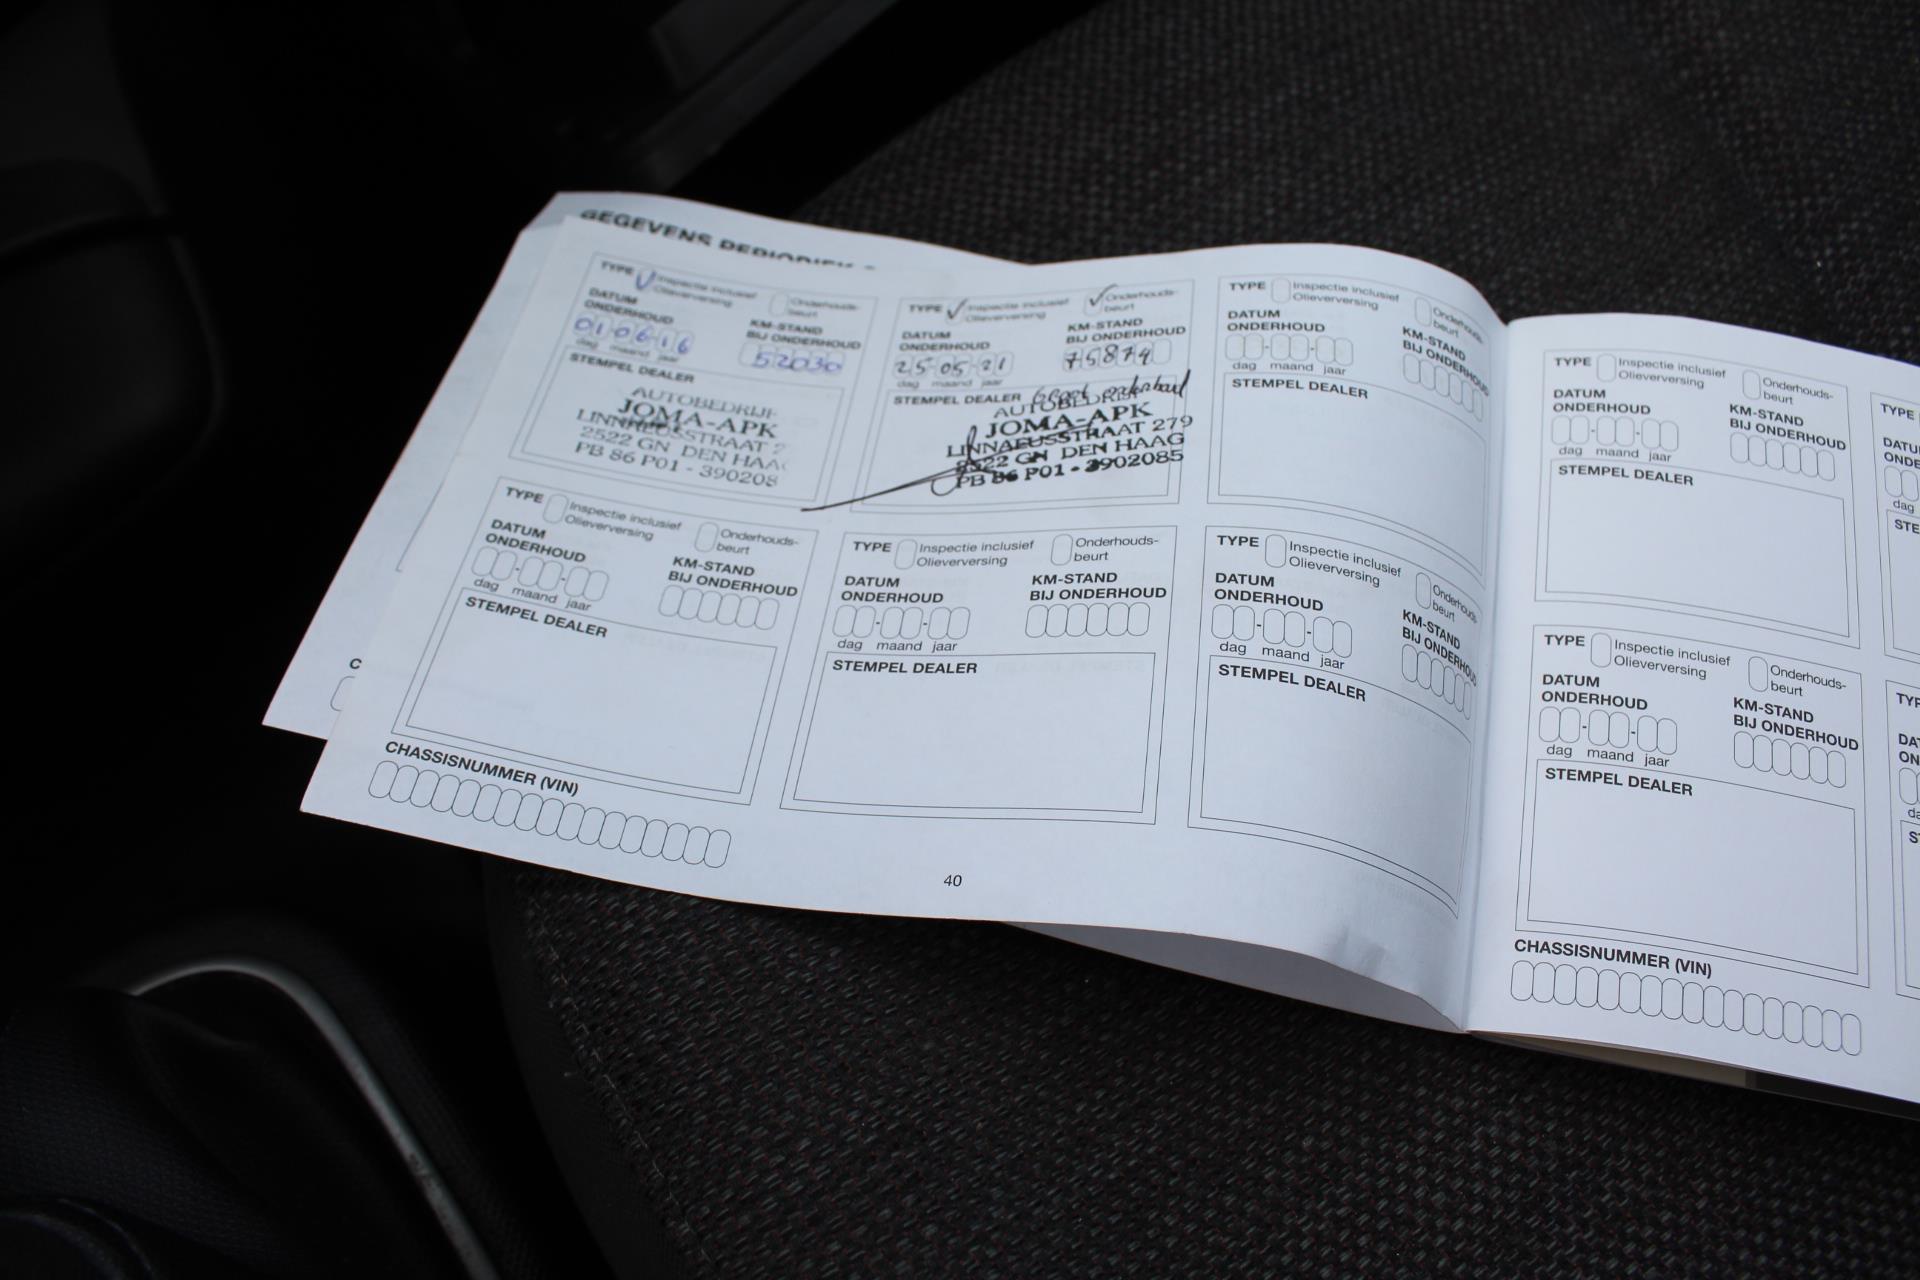 GEGEVENS PERIODIEK
TYPE Inspectie inclusief Olieverversing Onderhouds-beurt
DATUM ONDERHOUD KM-STAND BIJ ONDERHOUD
01 06 16 52030
dag maand jaar
STEMPEL DEALER
AUTOBEDRIJF
JOMA-APK
LINNAEUSSTRAAT 2
2522 GN DEN HAAG
PB 86 P01 - 390208
TYPE Inspectie inclusief Olieverversing Onderhouds-beurt
DATUM ONDERHOUD KM-STAND BIJ ONDERHOUD
25 05 21 75874
dag maand jaar
STEMPEL DEALER Groot onderhoud
AUTOBEDRIJF
JOMA-APK
LINNAEUSSTRAAT 279
2522 GN DEN HAAG
PB 86 P01 - 3902085
TYPE Inspectie inclusief Olieverversing Onderhouds-beurt
DATUM ONDERHOUD KM-STAND BIJ ONDERHOUD
dag maand jaar
STEMPEL DEALER
TYPE Inspectie inclusief Olieverversing Onderhouds-beurt
DATUM ONDERHOUD KM-STAND BIJ ONDERHOUD
dag maand jaar
STEMPEL DEALER
TYPE Inspectie inclusief Olieverversing Onderhouds-beurt
DATUM ONDERHOUD KM-STAND BIJ ONDERHOUD
dag maand jaar
STEMPEL DEALER
TYPE Inspectie inclusief Olieverversing Onderhouds-beurt
DATUM ONDERHOUD KM-STAND BIJ ONDERHOUD
dag maand jaar
STEMPEL DEALER
CHASSISNUMMER (VIN)
40
TYPE Inspectie inclusief Olieverversing Onderhouds-beurt
DATUM ONDERHOUD KM-STAND BIJ ONDERHOUD
dag maand jaar
STEMPEL DEALER
TYPE
dag
TYPE Inspectie inclusief Olieverversing Onderhouds-beurt
DATUM ONDERHOUD KM-STAND BIJ ONDERHOUD
dag maand jaar
STEMPEL DEALER
CHASSISNUMMER (VIN)